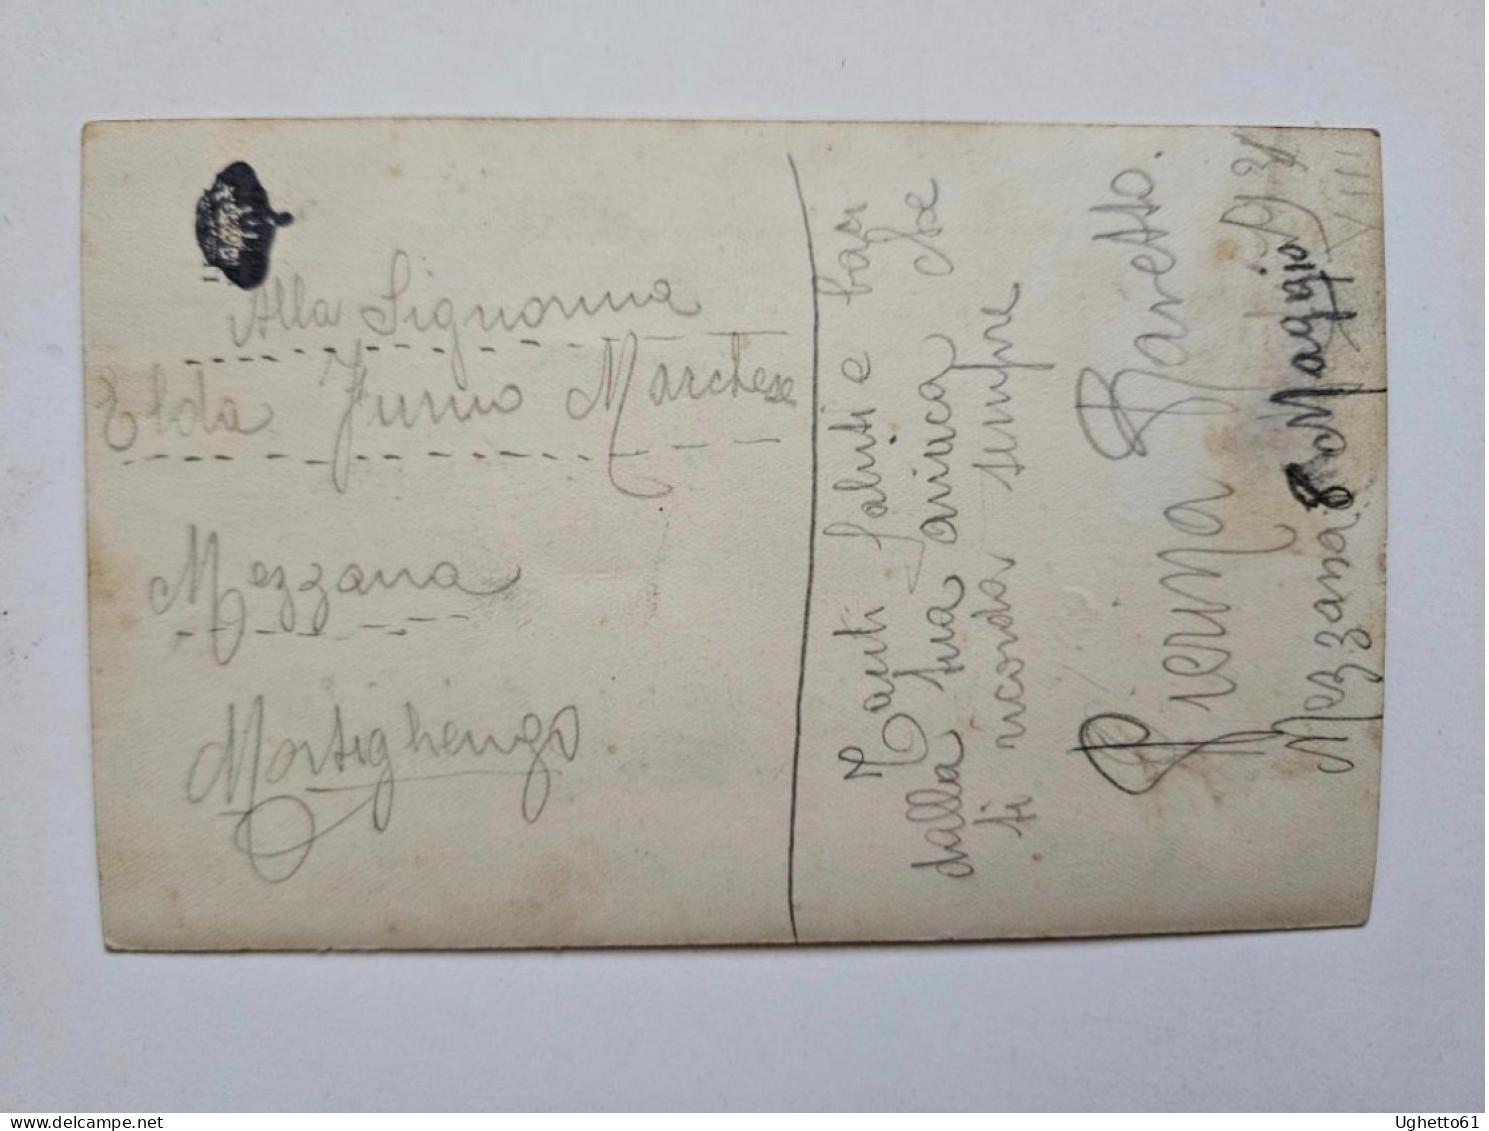 Alla Signorina
Elda Junio Marchese
Mezzana
Mortighengo
Tanti Saluti e baci
dalla tua amica che
ti ricorda sempre
Pierina Baretto.
Mezzana Maggio
XIII
Ughetto61